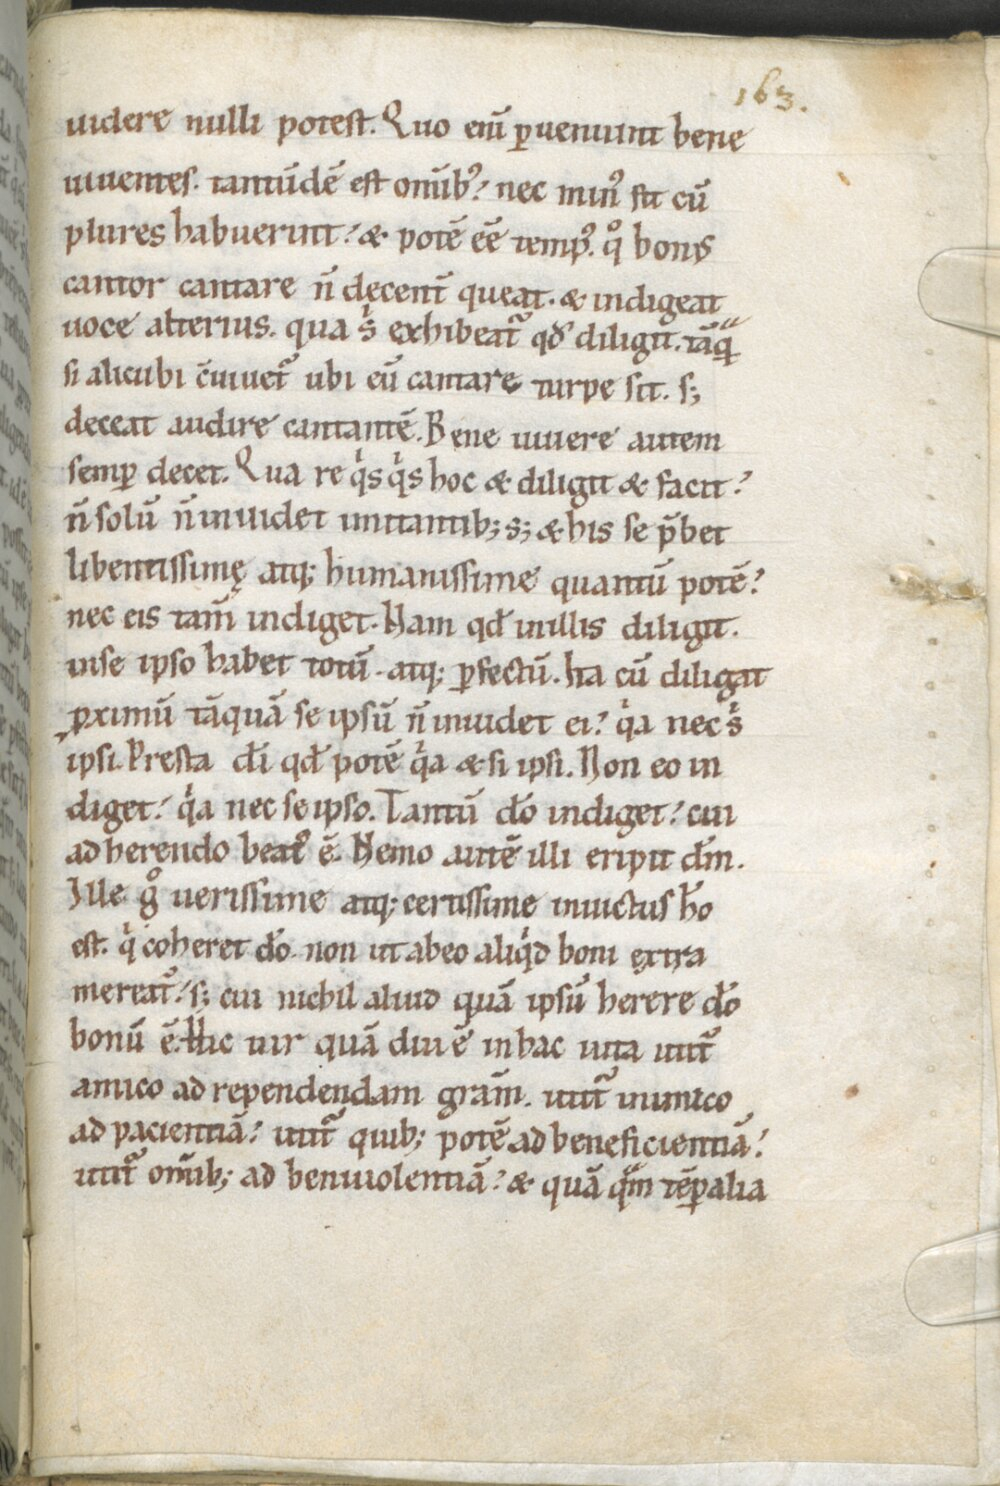 163.
uidere nulli potest. Quo eni̅ p̲ueniunt bene
uiuentes. tantu̅de̅ est omib᷒? nec min᷒ fit cu̅
plures habuerint? & pote̅ ee̅ temp᷒. qͦ bon᷒
cantor cantare n̅ decent̅ queat. & indigeat
uoce alterius. qua sⁱ exhibeat᷑ qd̛ diligit. ta̅qᷓ
si alicubi c̅uiuet᷑ ubi eu̅ cantare turpe sit. s;
deceat audire cantante̅. Bene uiuere autem
semp̲ decet. Qua re qⁱsqⁱs hoc & diligit & facit?
n̅ solu̅ n̅ inuidet imitantib; s; & his se p̅bet
libentissimę atq; humanissime quantu̅ pote̅?
nec eis tam̅ indiget. Nam qd̅ inillis diligit.
inse ipso habet totu̅. atq; p̲fectu̅. Ita cu̅ diligat
ꝓximu̅ ta̅qua̅ se ipsu̅ n̅ inuidet ei? qⁱa nec sⁱ
ipsi. Presta d̅i qd̅ pote̅ qⁱa & si ipsi. Non eo in
diget? qⁱa nec se ipso. Tantu̅ d̅o indiget? cui
adherendo beat᷒ e̅. Nemo aute̅ illi eripit d̅m.
Ille gͦ uerissime atq; certissime inuictus h̅o
est. qⁱ coheret d̅o. non ut abeo aliqⁱd boni extra
mereat᷑? s; cui nichil aliud qua̅ ipsu̅ herere d̅o
bonu̅ e̅. Hic uir qua̅ diu e̅ inhac uita utit᷑
amico ad rependendam gra̅m. utit᷑ inimico
ad pacientia̅? utit᷑ quib; pote̅ ad beneficientia̅?
utit᷑ omib; ad beniuolentia̅? & qua̅ qᷓm te̅p̲alia